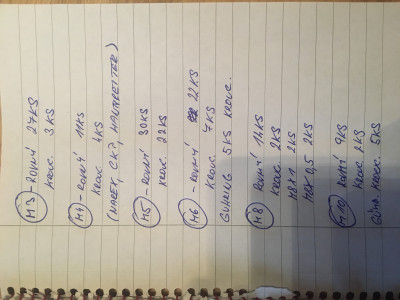 M3 - ROVNÝ 27KS
KROUC. 3KS
M4 - ROVNÝ 11KS
KROUC 4KS
(NAREX, CKP, HAUNREITER)
M5 - ROVNÍ 30KS
KROUC. 22KS
M6 - ROVNÍ 22KS
KROUC. 7KS
GÜHRING 5KS KROUC.
M8 ROVNÝ 14KS
KROUC. 2KS
M8X1 2KS
M8X0,5 2KS
M10 ROVNÍ 9KS
KROUC 2KS
KROUC. 5KS